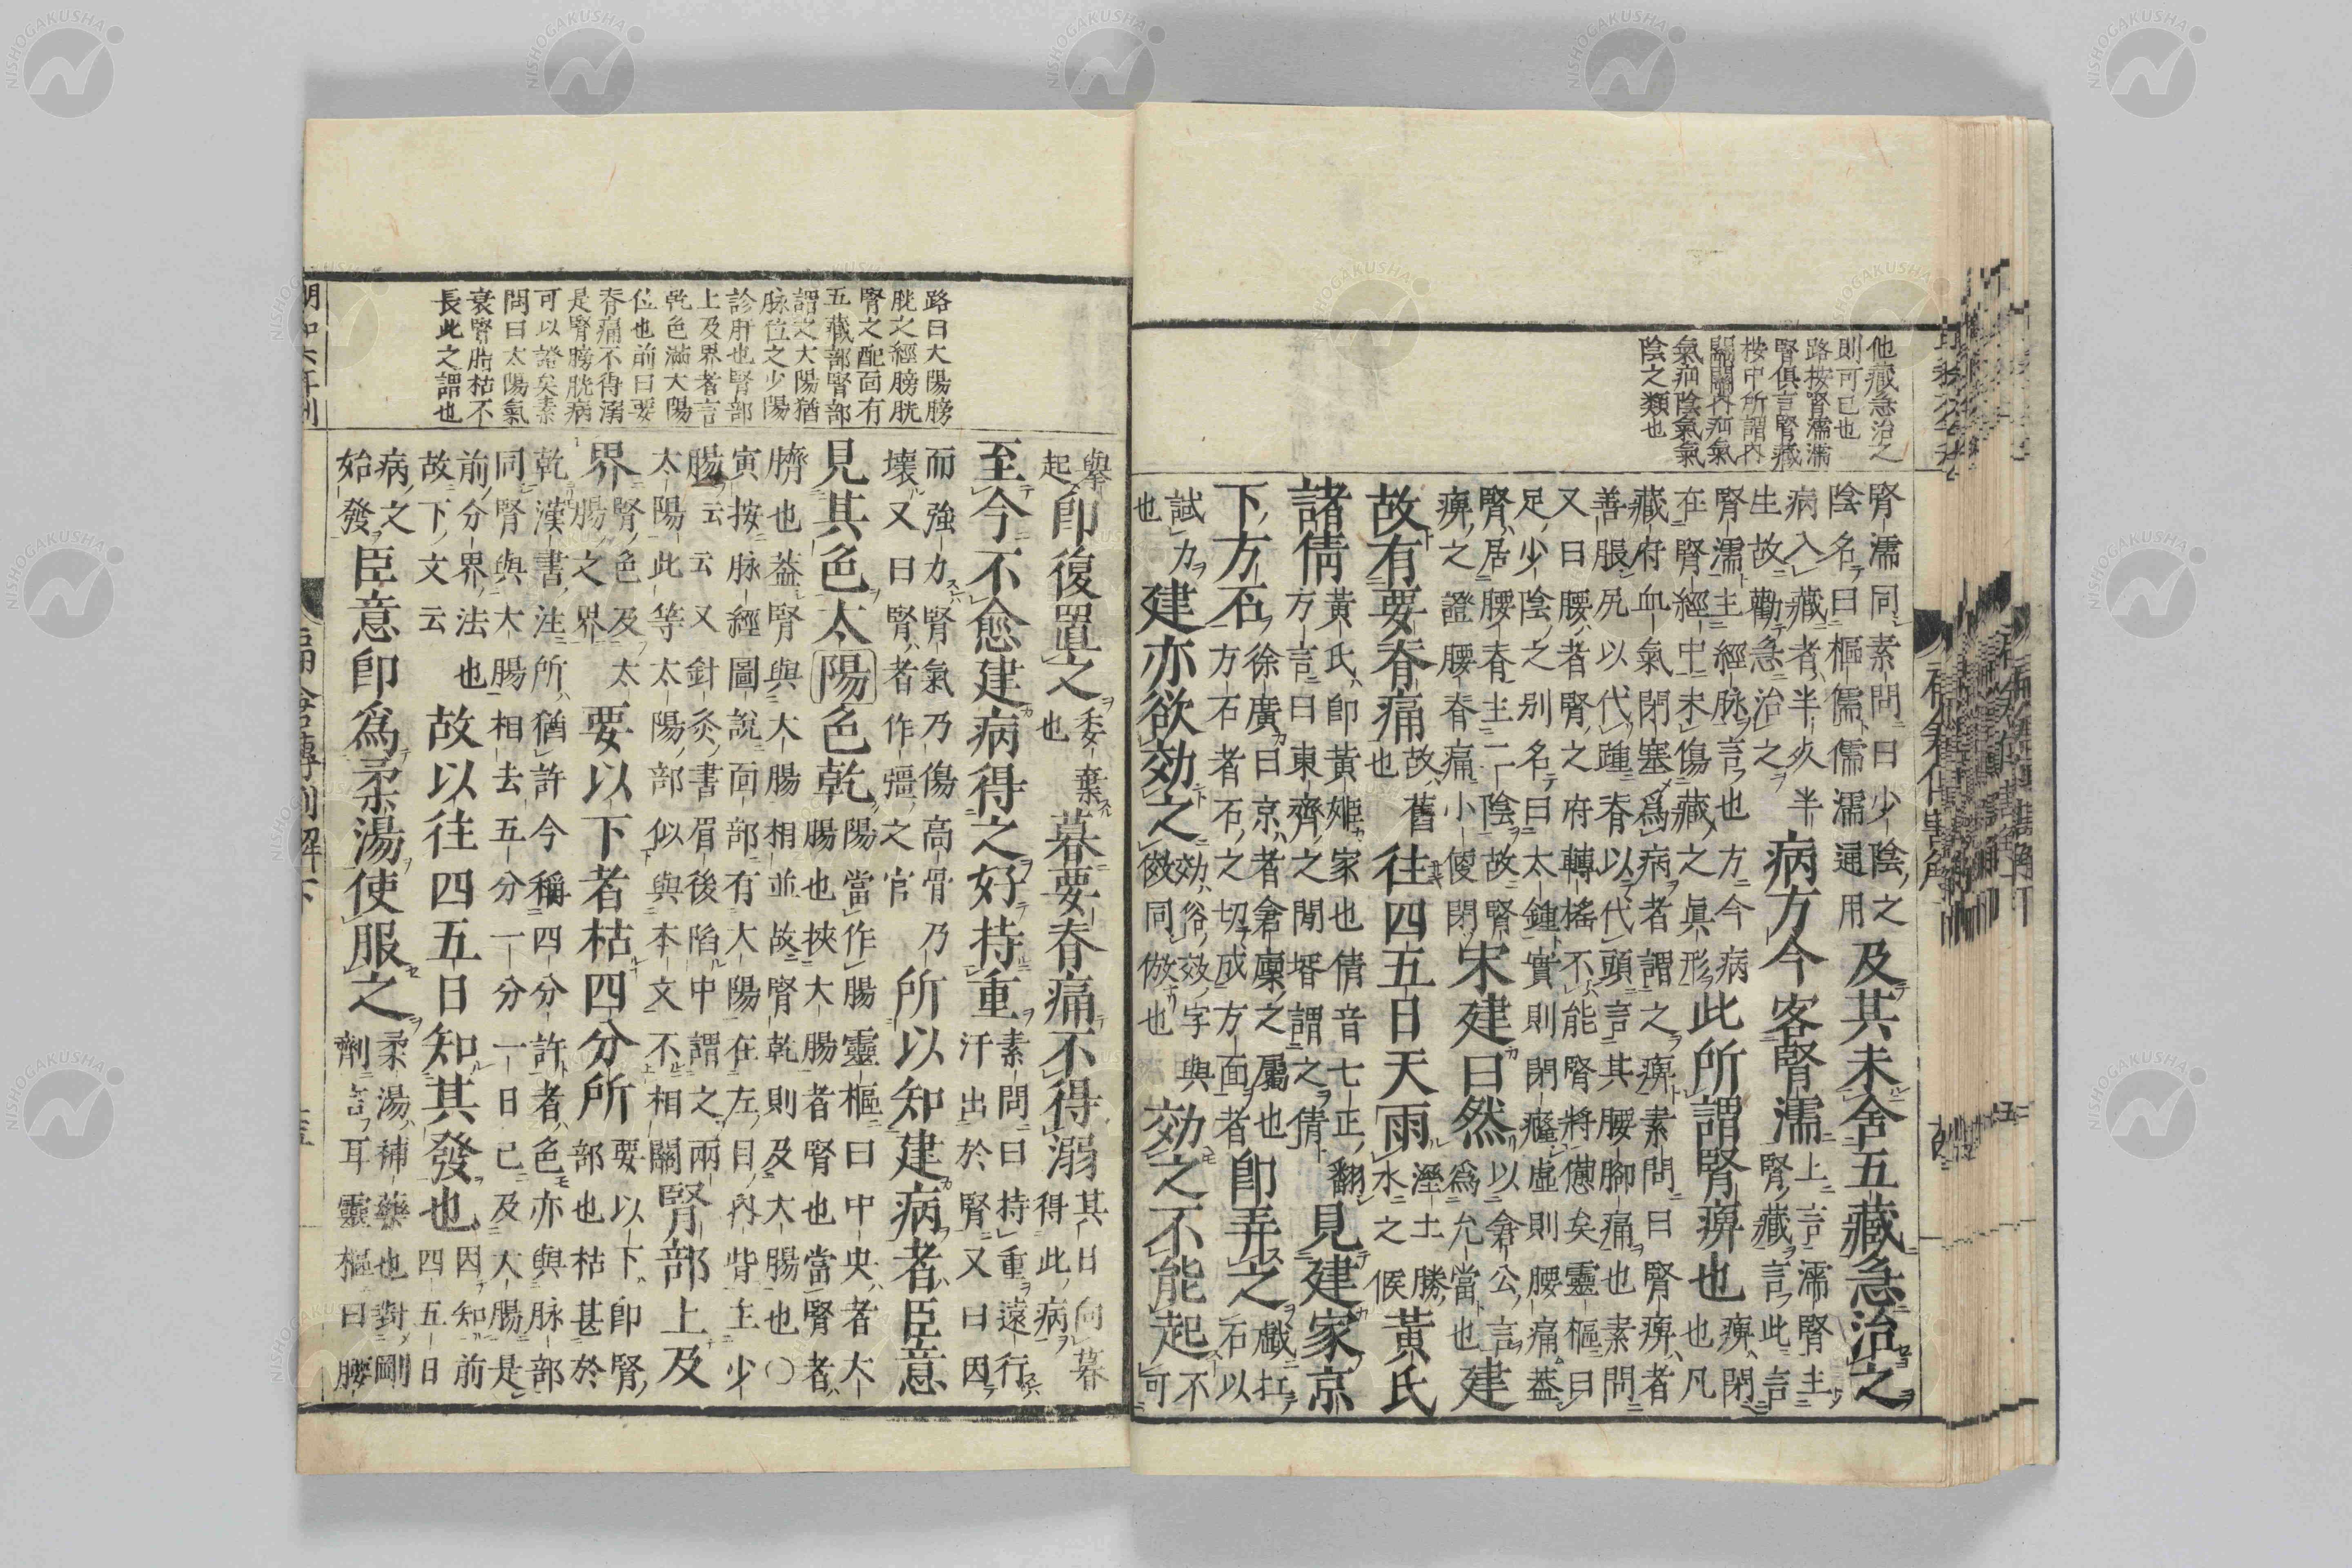 他藏急治之
則可已也
路按腎濡濡
腎俱言腎藏
按中所謂內
關關內疝氣
氣疝陰氣氣
陰之類也
腎濡同素問曰少陰之
陰名曰樞儒儒濡通用
及其未舍五藏急治之
病入藏者半夾半
生故勸急治之
病方今客腎濡
上言濡腎主
腎藏言此言
腎濡主經脉言也方今病
在腎經中未傷藏之眞形
此所謂腎痹也
痹閉
也凡
藏府血氣閉塞爲病者謂之痹素問曰腎痹者
善脹尻以代踵脊以代頭言其腰腳痛也素問
又曰腰者腎之府轉搖不能腎將憊矣靈樞曰
足少陰之別名曰太鍾實則閉癃虛則腰痛蓋
腎居腰脊主二陰故腎
痹之證腰脊痛小便閉
宋建曰然
以倉公言
爲允當也
建
故有要脊痛
故舊
也
往四五日天雨
溼土勝
水之候
黃氏
諸倩
黃氏卽黃姬家也倩音七正翻
方言曰東齊之閒壻謂之倩
見建家京
下方石
徐廣曰京者倉廩之屬也
方石者石之切成方面者
卽弄之
戲扛
石以
試力
也
建亦欲効之
効俗效字與
傚同倣也
効之不能起
不
可
路曰大陽膀
胱之經膀胱
腎之配面有
五藏部腎部
謂之大陽猶
脉位之少陽
診肝也腎部
上及界者言
乾色滿大陽
位也前曰要
脊痛不得溺
是腎膀胱病
可以證矣素
問曰太陽氣
衰腎脂枯不
長此之謂也
擧
起
卽復置之
委棄
也
暮要脊痛不得溺
其日向暮
得此病
至今不愈建病得之好持重
素問曰持重遠行
汗出於腎又曰因
而強力腎氣乃傷高骨乃
壞又曰腎者作彊之官
所以知建病者臣意
見其色太陽色乾
陽當作腸靈樞曰中央者大
腸也挾大腸者腎也當腎者
臍也蓋腎與大腸相並故腎乾則及大腸也〇
寅按脉經圖說面部有大陽在左目內眥主少
腸云云又針灸書眉後陷中謂之兩
太陽此等太陽部似與本文不相關
腎部上及
界
腎色及太
腸之界
要以下者枯四分所
要以下卽腎
部也枯甚於
乾漢書注所猶許今稱四分許者色亦與脉部
同腎與大腸相去五分一分一日已及大腸是
前分界法也
故下文云
故以往四五日知其發也
因知前
四五日
病之
始發
臣意卽爲柔湯使服之
柔湯補藥也對剛
劑言耳靈樞曰腰